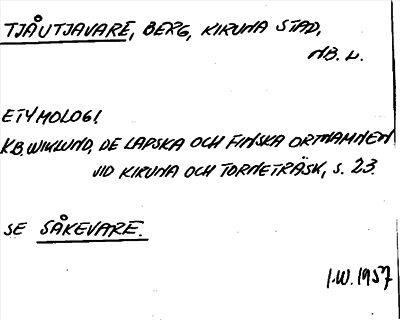 TJÅUTJAVARE, BERG, KIRUNA STAD,
NB. L.
ETYMOLOGI
K.B. WIKLUND, DE LAPSKA OCH FINSKA ORTNAMNEN
VID KIRUNA OCH TORNETRÄSK, S. 23.
SE SÅKEVARE.
I.W. 1957